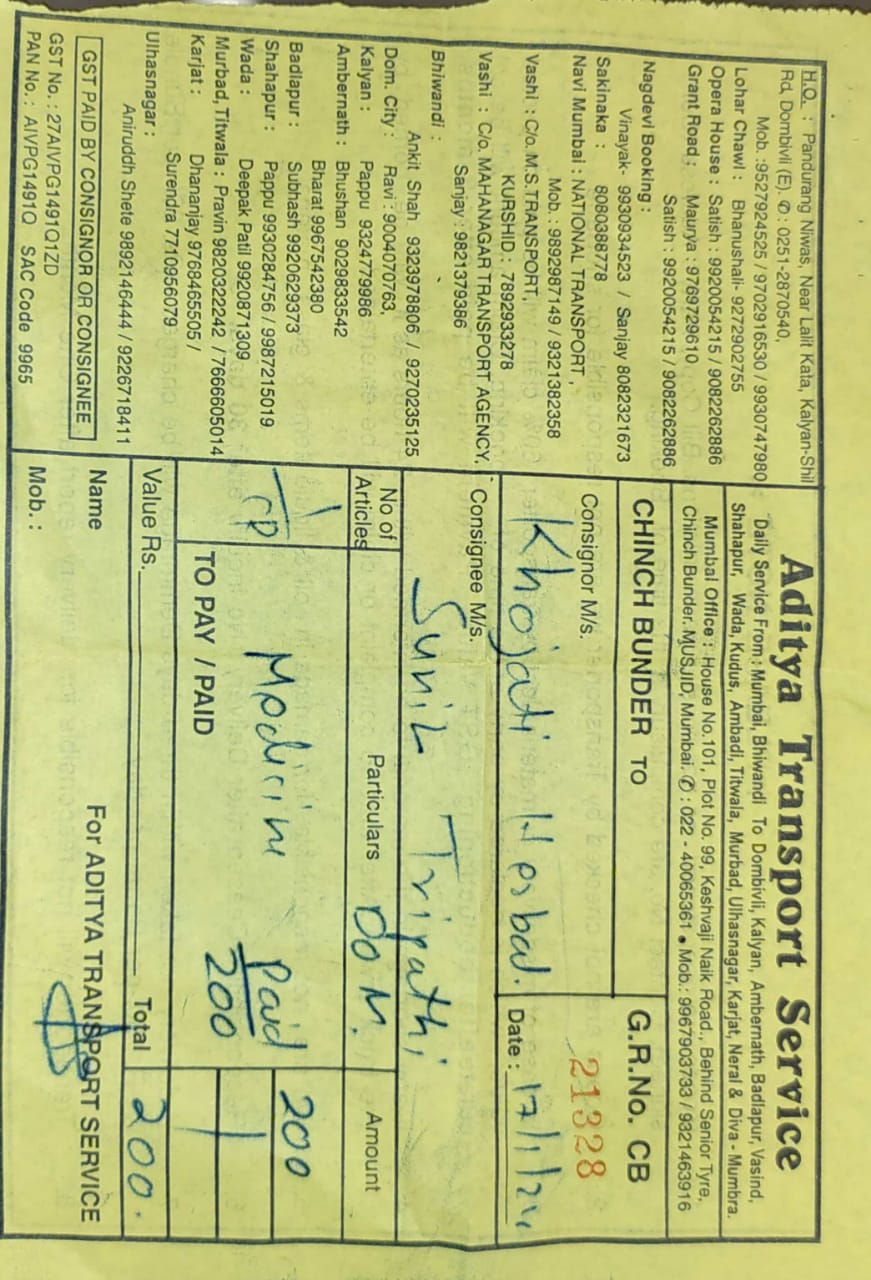 Aditya Transport Service
Daily Service From : Mumbai, Bhiwandi To Dombivli, Kalyan, Ambernath, Badlapur, Vasind,
Shahapur, Wada, Kudus, Ambadi, Titwala, Murbad, Ulhasnagar, Karjat, Neral & Diva - Mumbra.
Mumbai Office : House No.101, Plot No. 99, Keshvaji Naik Road., Behind Senior Tyre,
Chinch Bunder. MUSJID, Mumbai. ✆ : 022 - 40065361 • Mob.: 9967903733 / 9321463916
H.O. : Pandurang Niwas, Near Lalit Kata, Kalyan-Shil
Rd, Dombivli (E). ✆ : 0251-2870540,
Mob. :9527924525 / 9702916530 / 9930747980
Lohar Chawl : Bhanushali- 9272902755
Opera House : Satish : 9920054215 / 9082262886
Grant Road : Maurya : 9769729610
Satish : 9920054215 / 9082262886
Nagdevi Booking :
Vinayak- 9930934523 / Sanjay 8082321673
Sakinaka : 8080388778
Navi Mumbai : NATIONAL TRANSPORT,
Mob. : 9892987149 / 9321382358
Vashi : C/o. M.S.TRANSPORT,
KURSHID : 7892933278
Vashi : C/o. MAHANAGAR TRANSPORT AGENCY,
Sanjay : 9821379386
Bhiwandi :
Ankit Shah 9323978806 / 9270235125
Dom. City : Ravi : 9004070763,
Kalyan : Pappu 9324779986
Ambernath : Bhushan 9029833542
Bharat 9967542380
Badlapur : Subhash 9920629373
Shahapur : Pappu 9930284756 / 9987215019
Wada : Deepak Patil 9920871309
Murbad, Titwala : Pravin 9820322242 /7666605014
Karjat : Dhananjay 9768465505 /
Surendra 7710956079
Ulhasnagar :
Aniruddh Shete 9892146444 / 9226718411
GST PAID BY CONSIGNOR OR CONSIGNEE
GST No. : 27AIVPG1491Q1ZD
PAN No.: AIVPG1491Q SAC Code 9965
CHINCH BUNDER TO
G.R.No. CB
21328
Consignor M/s.
Khojati Herbal.
Date : 17/1/24
Consignee M/s.
Sunil Tripathi
No of Articles Particulars Amount
DOM.
1
TCP Medicine Paid 200
200
TO PAY / PAID
Value Rs. Total 200.
Name For ADITYA TRANSPORT SERVICE
Mob. :